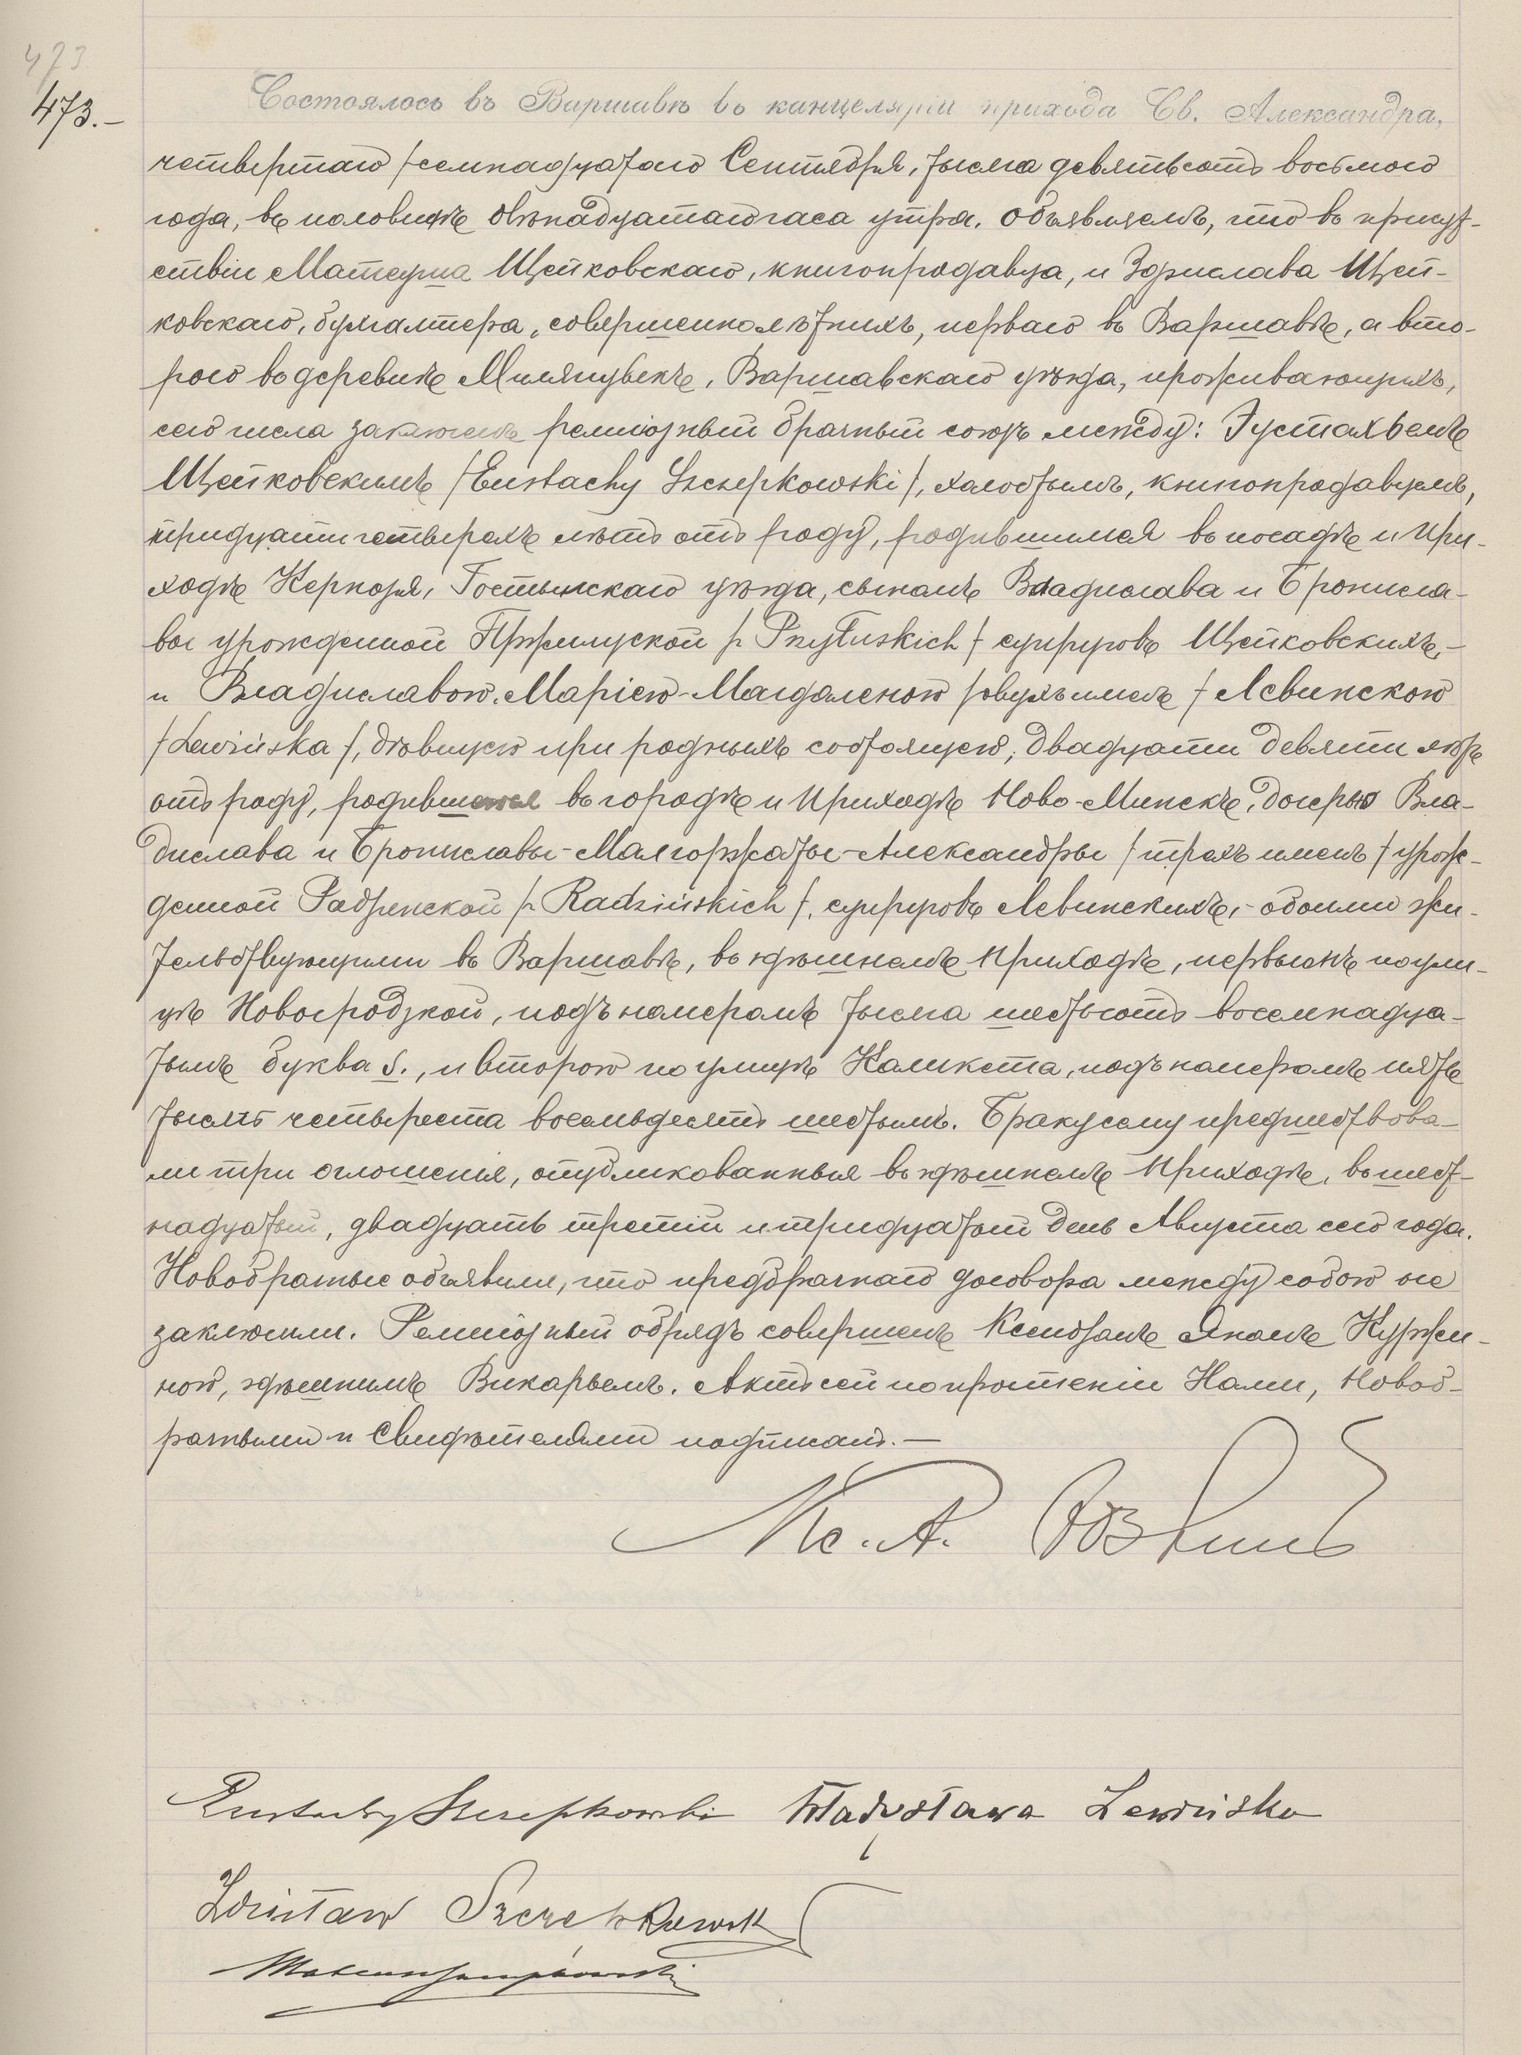 473
473.—
Состоялось въ Варшавѣ въ канцеляріи прихода Св. Александра,
четвертаго /семнадцатаго Сентября, тысяча девятьсотъ восьмого
года, въ половинѣ двѣнадцатаго часа утра. Объявляемъ, что въ присут-
ствіи Матеуша Щепковскаго, книгопродавца, и Здзислава Щеп-
ковскаго, бухгалтера, совершеннолѣтнихъ, перваго въ Варшавѣ, а вто-
рого въ деревнѣ Милянувекъ, Варшавскаго уѣзда, проживающихъ,
сего числа заключенъ религіозный брачный союзъ между: Эустахьемъ
Щепковскимъ /Eustachy Szczepkowski/, холостымъ, книгопродавцемъ,
тридцати четырехъ лѣтъ отъ роду, родившимся въ посадѣ и при-
ходѣ Кернозя, Гостынскаго уѣзда, сыномъ Владислава и Бронисла-
вы урожденной Пржилуской /z Przyłuskich/ супруговъ Щепковскихъ,—
и Владиславою-Маріею-Магдаленою /двухъ именъ/ Левинскою
/Lewińska/, дѣвицею при родныхъ состоящею, двадцати девяти лѣтъ
отъ роду, родившеюся въ городѣ и приходѣ Ново-Минскѣ, дочерью Вла-
дислава и Брониславы-Малгоржаты-Александры /трехъ именъ/ урож-
денной Радзинской /z Radzińskich/, супруговъ Левинскихъ,- обоими жи-
тельствующими въ Варшавѣ, въ здѣшнемъ приходѣ, первымъ по ули-
цѣ Новогродзкой, подъ номеромъ тысяча шестьсотъ восемнадца-
тымъ буква S., и второю по улицѣ Каликста, подъ номеромъ пять
тысячъ четыреста восемьдесятъ шестымъ. Браку сему предшествова-
ли три оглошенія, опубликованныя въ здѣшнемъ приходѣ, въ шест-
надцатый, двадцать третій и тридцатый день Августа сего года.
Новобрачные объявили, что предбрачнаго договора между собою не
заключили. Религіозный обрядъ совершенъ Ксендзомъ Яномъ Куржи-
ною, здѣшнимъ Викарьемъ. Актъ сей по прочтеніи Нами, Новоб-
рачными и Свидѣтелями подписанъ.—
Кс. А.
Eustachy Szczepkowski Władysława Lewińska
Zdzisław Szczepkowski
Mateusz Szczepkowski